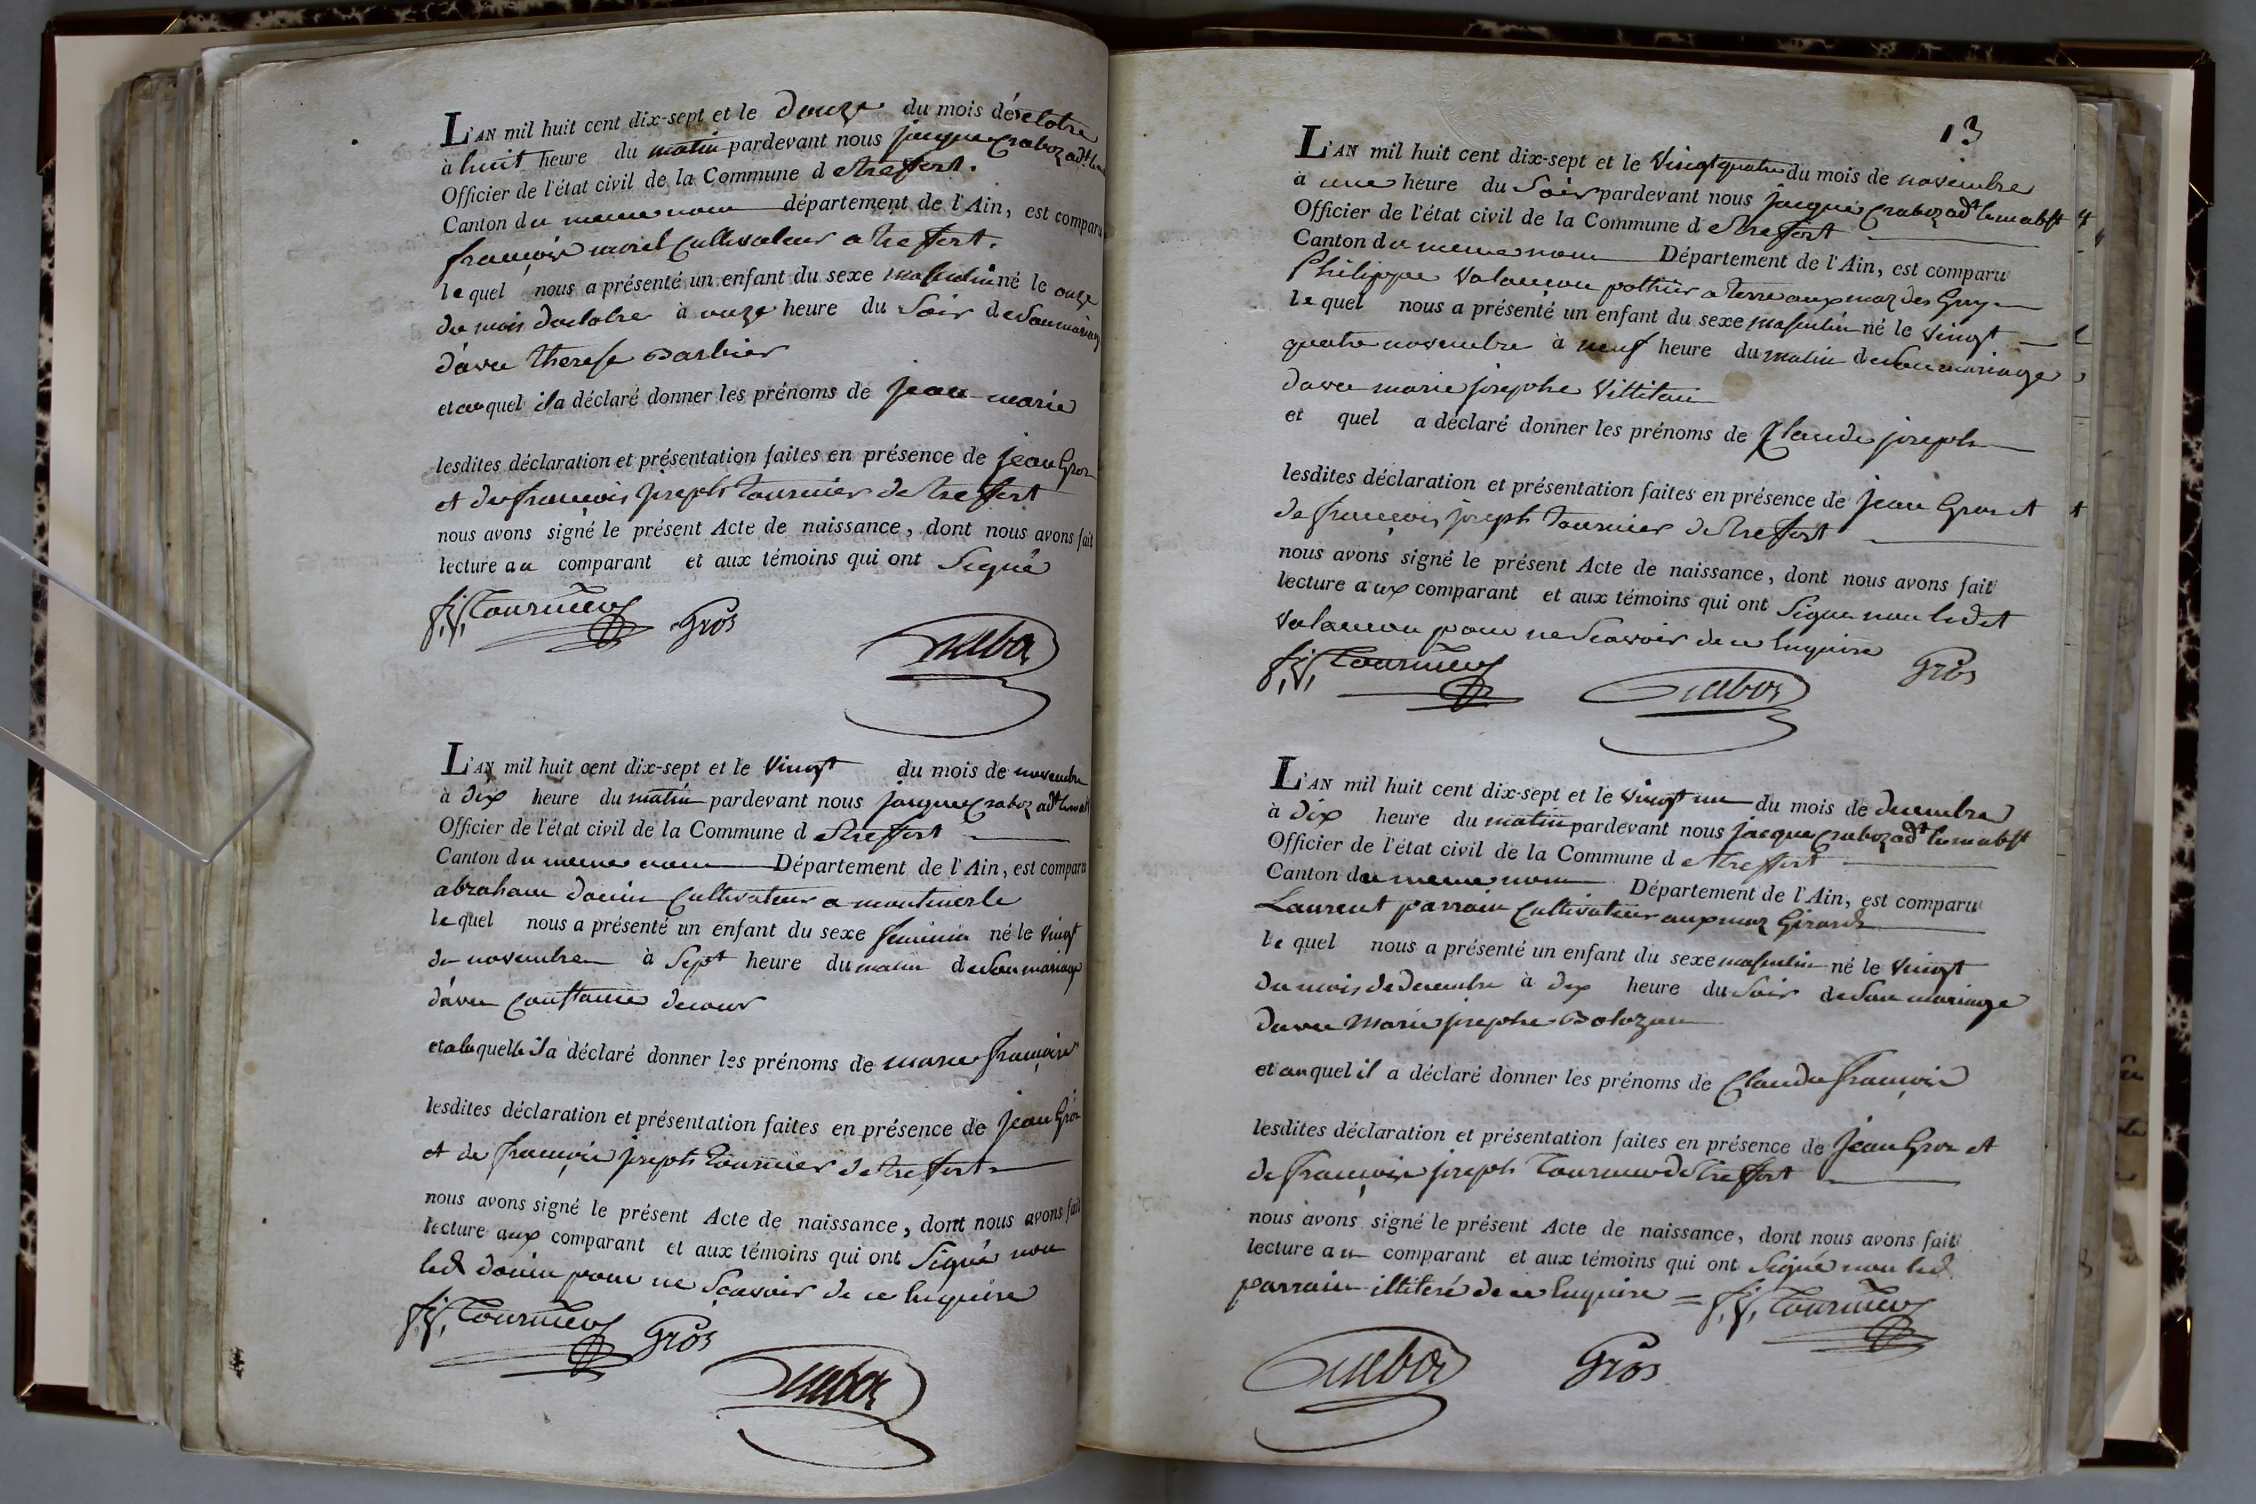 L'AN mil huit cent dix-sept et le douze du mois d'octobre
à huit heure du matin pardevant nous jacque Craboz adt
Officier de l'état civil de la Commune d e treffort.
Canton du meme nom département de l'Ain, est comparu
françois morel Cultivateur a treffort.
le quel nous a présenté un enfant du sexe masculin né le onze
du mois doctobre à onze heure du soir de son mariage
davec therese Barbier
et auquel il a déclaré donner les prénoms de jean-marie
lesdites déclaration et présentation faites en présence de jean Gros
et de françois joseph tournier de treffort
nous avons signé le présent Acte de naissance, dont nous avons fait
lecture au comparant et aux témoins qui ont signé
f, j, Tournier Gros
Craboz
L'AN mil huit cent dix-sept et le vingt du mois de novembre
à dix heure du matin pardevant nous jacque Craboz adt
Officier de l'état civil de la Commune d e treffort
Canton du meme nom Département de l'Ain, est comparu
abraham douin Cultivateur a montmerle
le quel nous a présenté un enfant du sexe feminin né le vingt
de novembre à sept heure du matin de son mariage
davec Constance decour
et a laquelle il a déclaré donner les prénoms de marie françoise
lesdites déclaration et présentation faites en présence de jean Gros
et de françois joseph tournier de treffort
nous avons signé le présent Acte de naissance, dont nous avons fait
lecture aux comparant et aux témoins qui ont signé non
led douin pour ne scavoir de ce enquire
f, j, Tournier Gros
Craboz
13
L'AN mil huit cent dix-sept et le vingt quatre du mois de novembre
à une heure du soir pardevant nous jacque Craboz adt
Officier de l'état civil de la Commune d e treffort
Canton du meme nom Département de l'Ain, est comparu
Philippe valancon pothier a terre aux maz des Guy
le quel nous a présenté un enfant du sexe masculin né le vingt
quatre novembre à neuf heure du matin de son mariage
davec marie josephe
et quel a déclaré donner les prénoms de Claude joseph
lesdites déclaration et présentation faites en présence de jean Gros et
de françois joseph tournier de treffort
nous avons signé le présent Acte de naissance, dont nous avons fait
lecture aux comparant et aux témoins qui ont signé non ledit
valancon pour ne scavoir de ce enquire
f, j, Tournier Craboz Gros
L'AN mil huit cent dix-sept et le vingt un du mois de decembre
à dix heure du matin pardevant nous jacque Craboz adt
Officier de l'état civil de la Commune d e treffort
Canton du meme nom Département de l'Ain, est comparu
Laurent parrain Cultivateur aux maz Girards
le quel nous a présenté un enfant du sexe masculin né le vingt
du mois de decembre à dix heure du soir de son mariage
davec Marie josephe Bolozan
et auquel il a déclaré donner les prénoms de Claude françois
lesdites déclaration et présentation faites en présence de jean Gros et
de françois joseph Tournier de treffort
nous avons signé le présent Acte de naissance, dont nous avons fait
lecture au comparant et aux témoins qui ont signé non led
parrain illiteré de ce enquire = f, j, Tournier
Craboz Gros